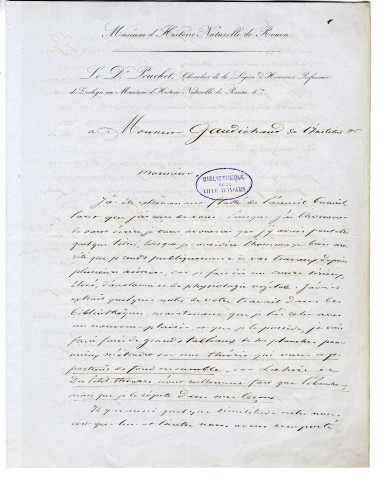 Muséum d'Histoire Naturelle de Rouen
Le Dr Pouchet, Chevalier de la Légion d'Honneur, Professeur
de Zoologie au Muséum d'Histoire Naturelle de Rouen &ca
a Monsieur Gaudichaud de l'institut &c
Monsieur,
BIBLIOTHÈQUE
DE LA
VILLE D'ANGERS
J'ai été de l'accueil
que j'ai reçu de vous. Lorsque j'ai l'honneur
de vous écrire, je vous avouerai que j'y avais peut être
quelque titre, lorsque je considère l'hommage bien
que je rends publiquement à vos travaux depuis
plusieurs années, car je fais ici un cours
d'anatomie et de physiologie végétale. J'avais
extrait quelques notes de votre travail dans les
bibliothèques, maintenant que je l'ai relu avec
un nouveau plaisir et que je le possède, je vais
faire faire de grands tableaux de vos planches pour
sur une théorie qui vous a
de fond en comble, car Lahire et
Du petit thouars n'ont nullement fait que
mais que je répète dans mes leçons.
Il y a aussi quelque similitude entre nous,
c'est que l'un et l'autre nous avons remporté